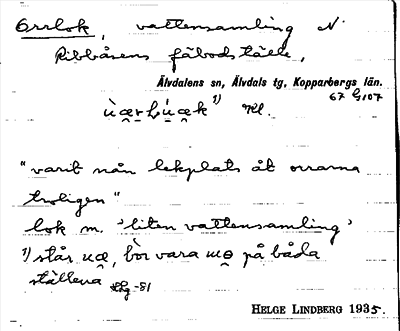 Orrlok, vattensamling N
Ribbåsens fäbodställe,
Älvdalens sn, Älvdals tg, Kopparbergs län.
67 G107
1)
"varit nån lekplats åt orrarna
troligen"
lok m. 'liten vattensamling'
1) står uæ, bör vara uo på båda
ställena Hg-81
HELGE LINDBERG 1935.